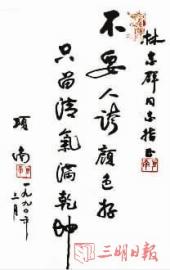 林志群同志指正
不要人誇顏色好
只留清氣滿乾坤
項南
一九九〇年
三月
三明日报